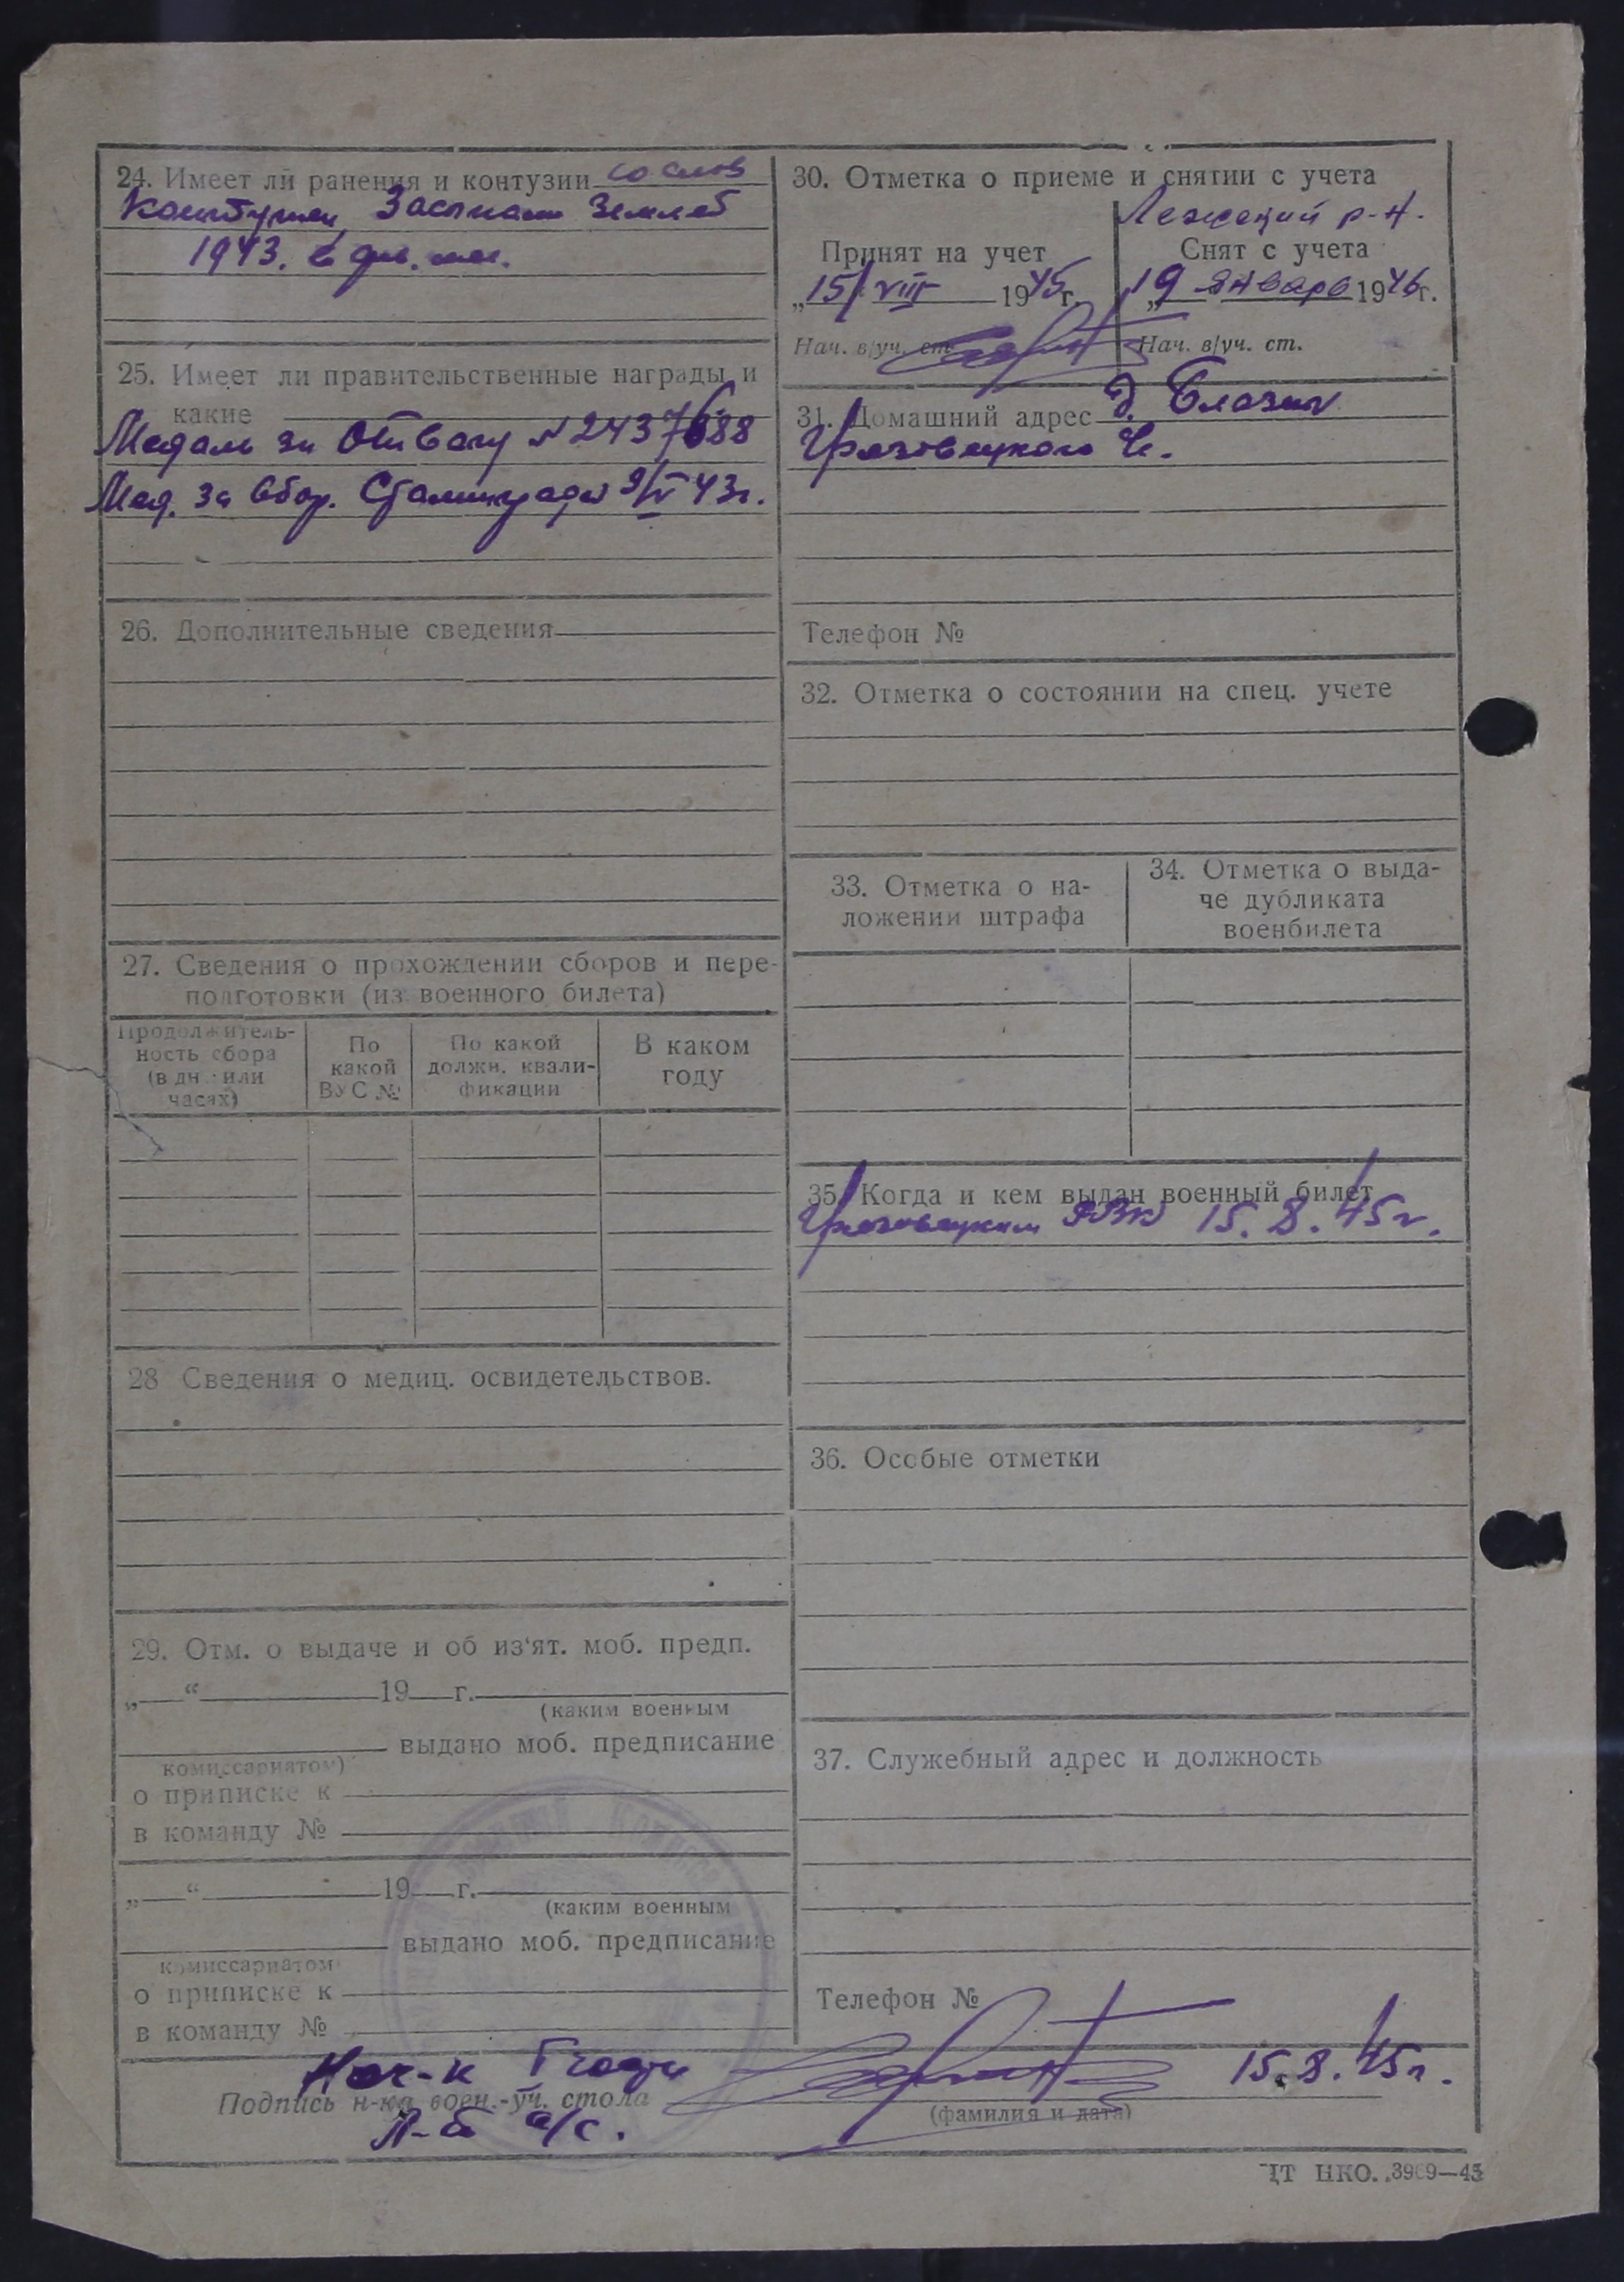 24. Имеет ли ранения и контузии со слов
Контужен, Засыпан Землей
1943. в
25. Имеет ли правительственные награды и
какие
Медаль за Отвагу N 2437688
Мед. за обор. Сталинграда 9/V 43г.
26. Дополнительные сведения
27. Сведения о прохождении сборов и пере-
подготовки (из военного билета)
Продолжитель-
ность сбора
(в дн. или
часах)
По
какой
ВУС №
По какой
должн. квали-
фикации
В каком
году
28 Сведения о медиц. освидетельствов.
29. Отм. о выдаче и об из'ят. моб. предп.
„ “ 19 г.
(каким военным
выдано моб. предписание
комиссариатом)
о приписке к
в команду №
„ “ 19 г.
(каким военным
выдано моб. предписание
комиссариатом)
о приписке к
в команду №
30. Отметка о приеме и снятии с учета
Лежский р-н.
Принят на учет
„15/ VIII 1945г.
Нач. в/уч. ст.
Снят с учета
„19 Января 1946г.
Нач. в/уч. ст.
31. Домашний адрес д.
Грязовецкого
Телефон №
32. Отметка о состоянии на спец. учете
33. Отметка о на-
ложении штрафа
34. Отметка о выда-
че дубликата
военбилета
35. Когда и кем выдан военный билет
Грязовецким РВК 15.8.45г.
36. Особые отметки
37. Служебный адрес и должность
Телефон №
Нач-к I части
Подпись н-ка воен.-уч. стола
Л-т а/с.
15.8.45г.
(фамилия и дата)